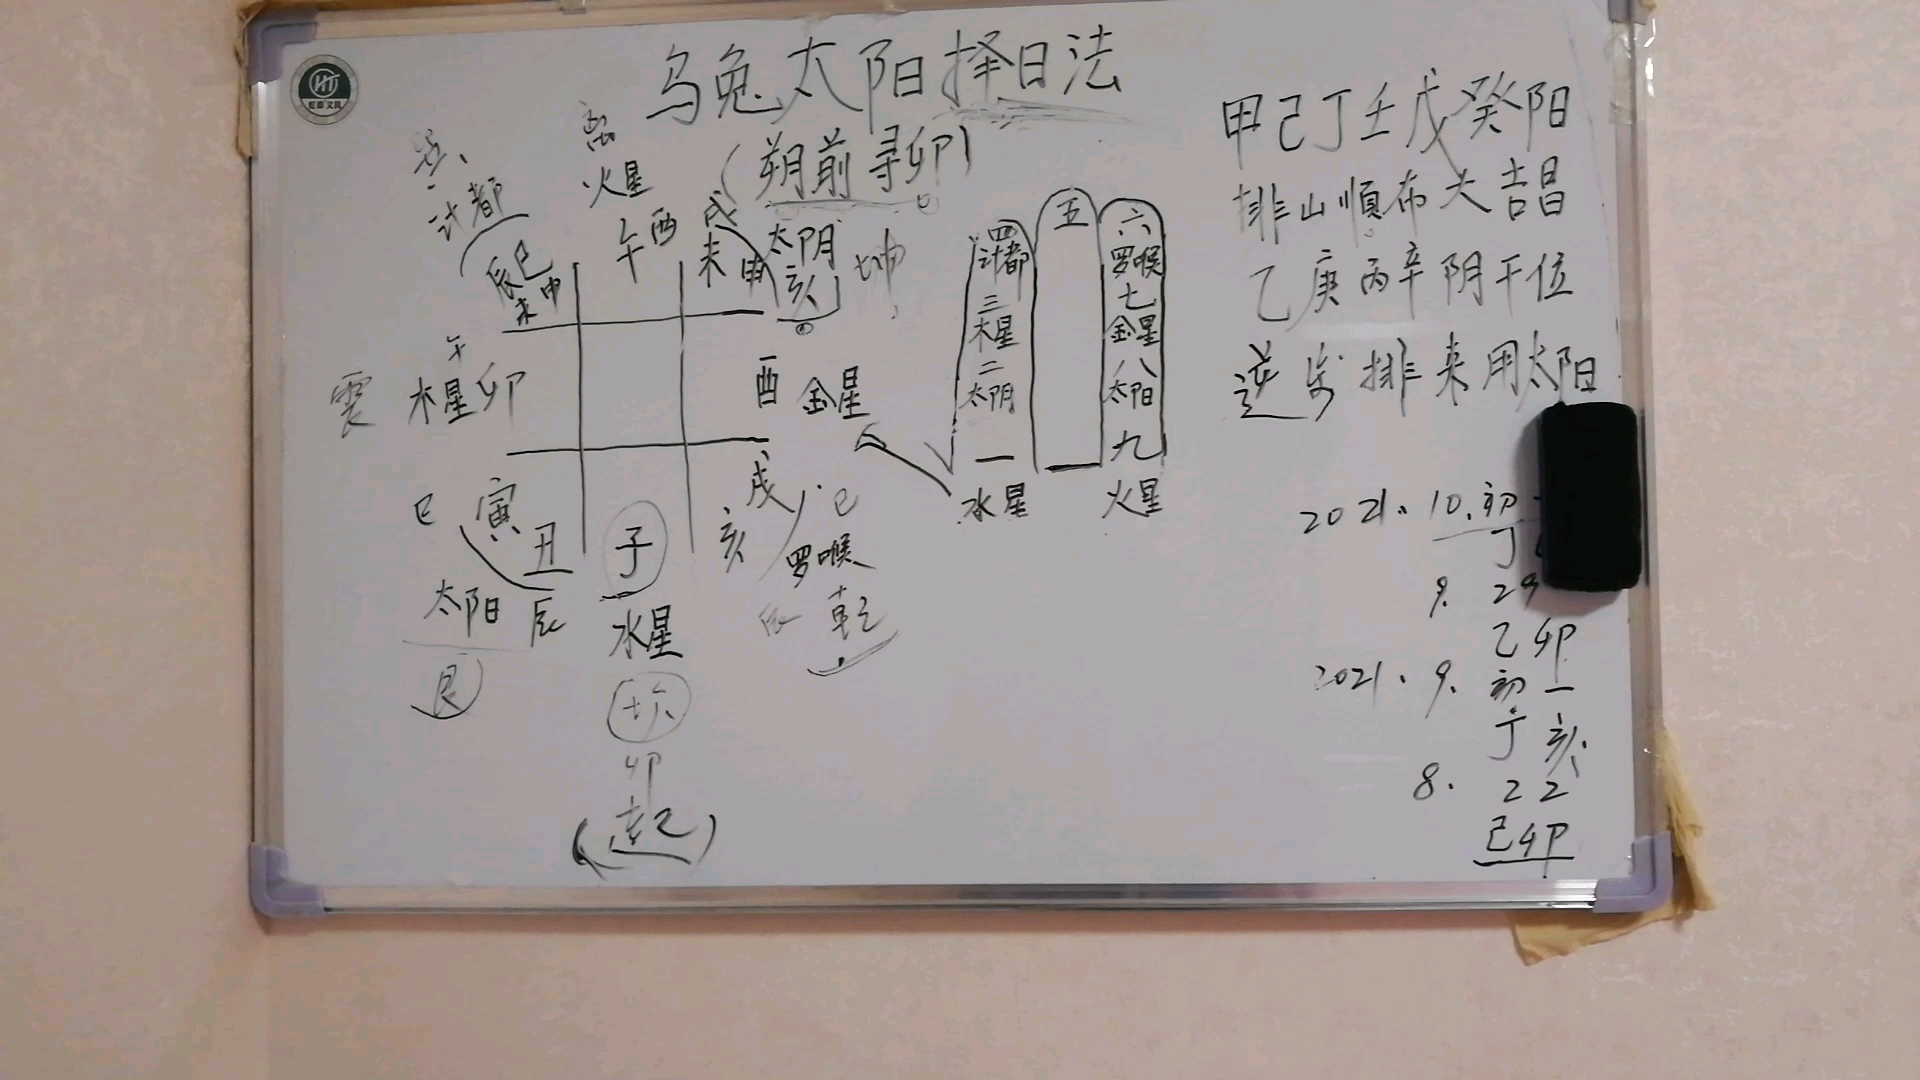 乌兔太阳择日法
(朔前寻卯)
HT
离
火星
计都
午 酉
戌
未 申
太阴
亥
坤
辰巳
未申
午
震 木星 卯
酉 金星
巳
寅
丑
太阳 辰
艮
子
水星
坎
卯
起
戌
亥
巳
罗喉
辰 乾
四
计都
三
木星
二
太阴
一
水星
五
六
罗喉
七
金星
八
太阳
九
火星
甲己丁壬戊癸阳
排山顺布大吉昌
乙庚丙辛阴干位
逆步排来用太阳
2021. 10. 初
丁
9. 29
乙卯
2021. 9. 初一
丁亥
8. 22
己卯